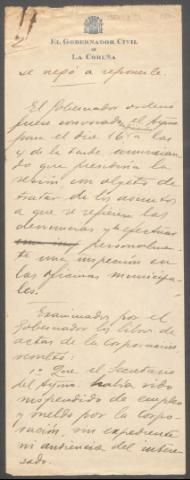 EL GOBERNADOR CIVIL
DE
LA CORUÑA
se negó a reponerle.
El Gobernador ordenó
fuese convocado el Aynto
para el día 16 a las
4 de la tarde, anuncian-
do que presidiría la
sesión, con objeto de
tratar de los asuntos
a que se refieren las
denuncias y efectuar
personalmen-
te una inspección en
las oficinas municipa-
les.
Examinados por el
Gobernador los libros de
actas de la Corporación
resultó:
1º Que el Secretario
del Aynto. había sido
suspendido de empleo
y sueldo por la corpo-
ración, sin expediente
ni audiencia del intere-
sado.